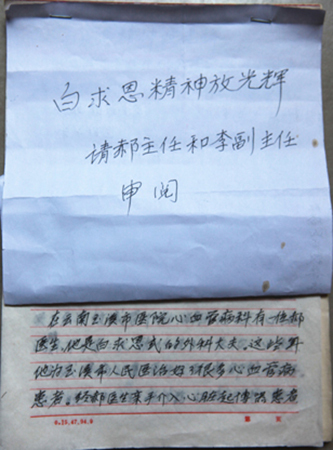 白求恩精神放光辉
请郝主任和李副主任
审阅
在云南玉溪市医院心血管病科有一位郝
医生，他是白求恩式的外科大夫。这些年
他为玉溪市人民医治好了很多心血管病
患者。经郝医生亲手介入心脏起搏器患者